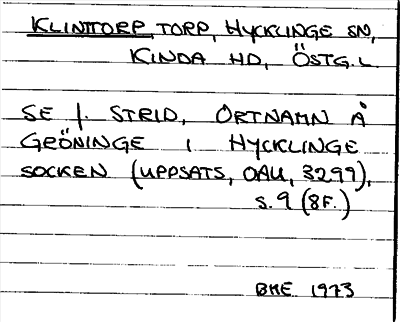 KLINTTORP, TORP, HYCKLINGE SN,
KINDA HD, ÖSTG. L.
SE J. STRID, ORTNAMN Å
GRÖNINGE I HYCKLINGE
SOCKEN (UPPSATS, OAU, 3299),
S. 9 (8F.)
BME 1973